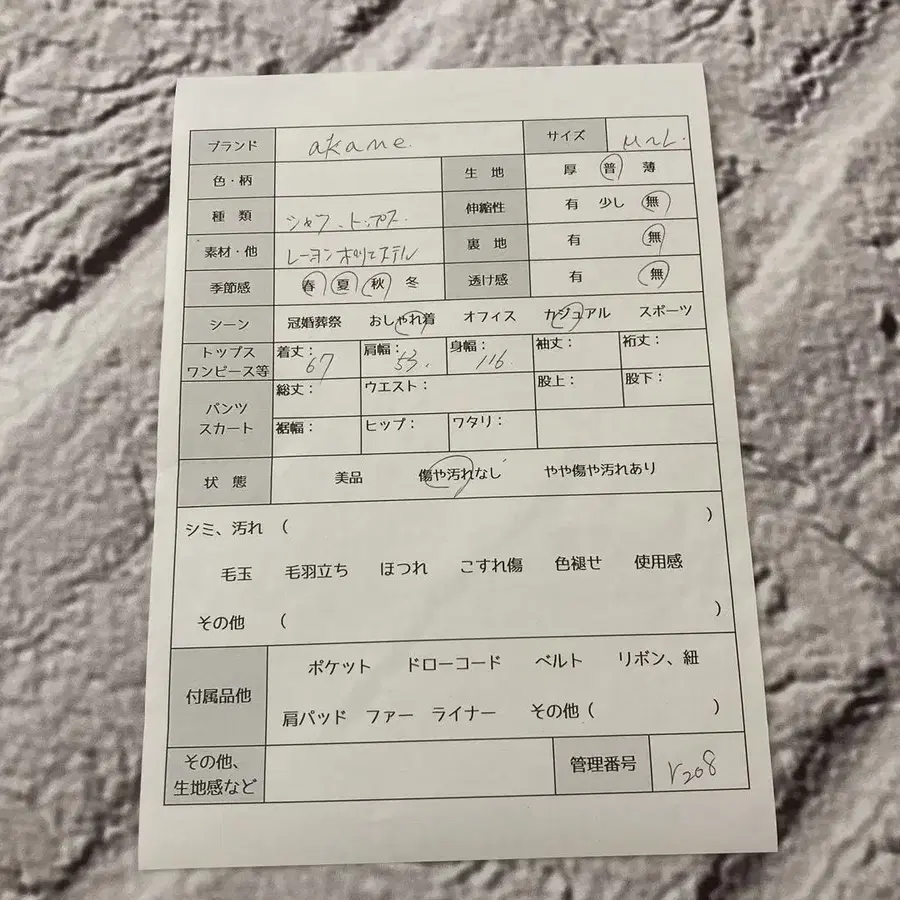 ブランド akane. サイズ M~L.
色・柄 生 地 厚 普 薄
種 類 シャツ、トップス. 伸縮性 有 少し 無
素材・他 レーヨン ポリエステル 裏 地 有 無
季節感 春 夏 秋 冬 透け感 有 無
シーン 冠婚葬祭 おしゃれ着 オフィス カジュアル スポーツ
トップス ワンピース等 着丈: 67 肩幅: 53. 身幅: 116. 袖丈: 裄丈:
パンツ スカート 総丈: ウエスト: 股上: 股下:
裾幅: ヒップ: ワタリ:
状 態 美品 傷や汚れなし やや傷や汚れあり
シミ、汚れ ( )
毛玉 毛羽立ち ほつれ こすれ傷 色褪せ 使用感
その他 ( )
付属品他 ポケット ドローコード ベルト リボン、紐
肩パッド ファー ライナー その他 ( )
その他、 生地感など 管理番号 r208